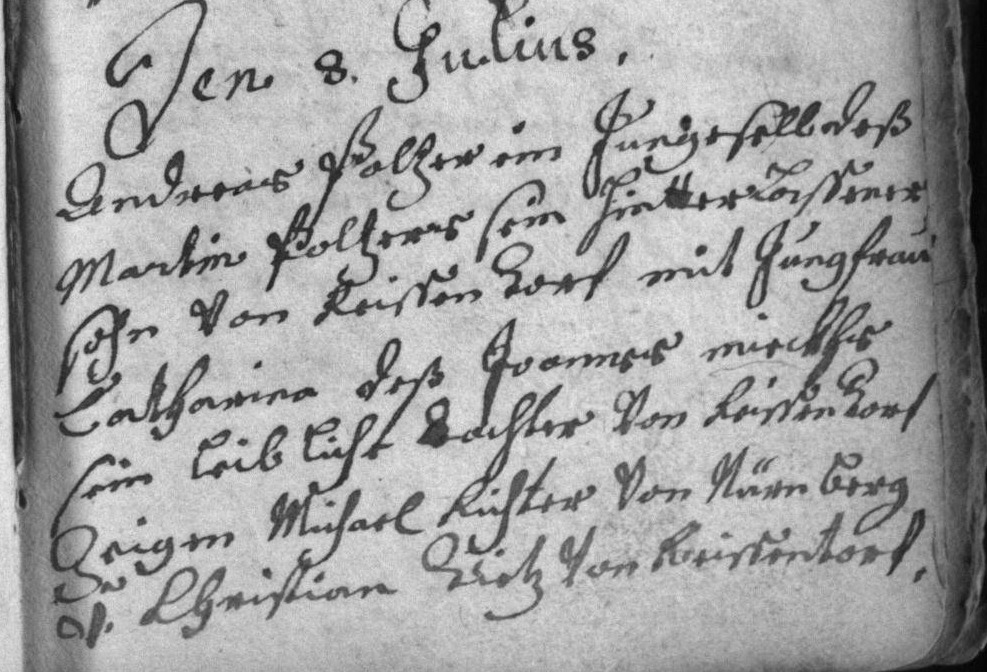 Den 8. Julius.
Andreas Poltzer ein Jungesell deß
Martin Poltzers sein hintterlassener
sohn Von Leissen Dorf mit Jungfrau
Catharina deß Joannes
sein leibliche Dochter Von Leissen Dorf
Zeigen Michael Richter Von Nürnberg
v. Christian Von Leissentorf.